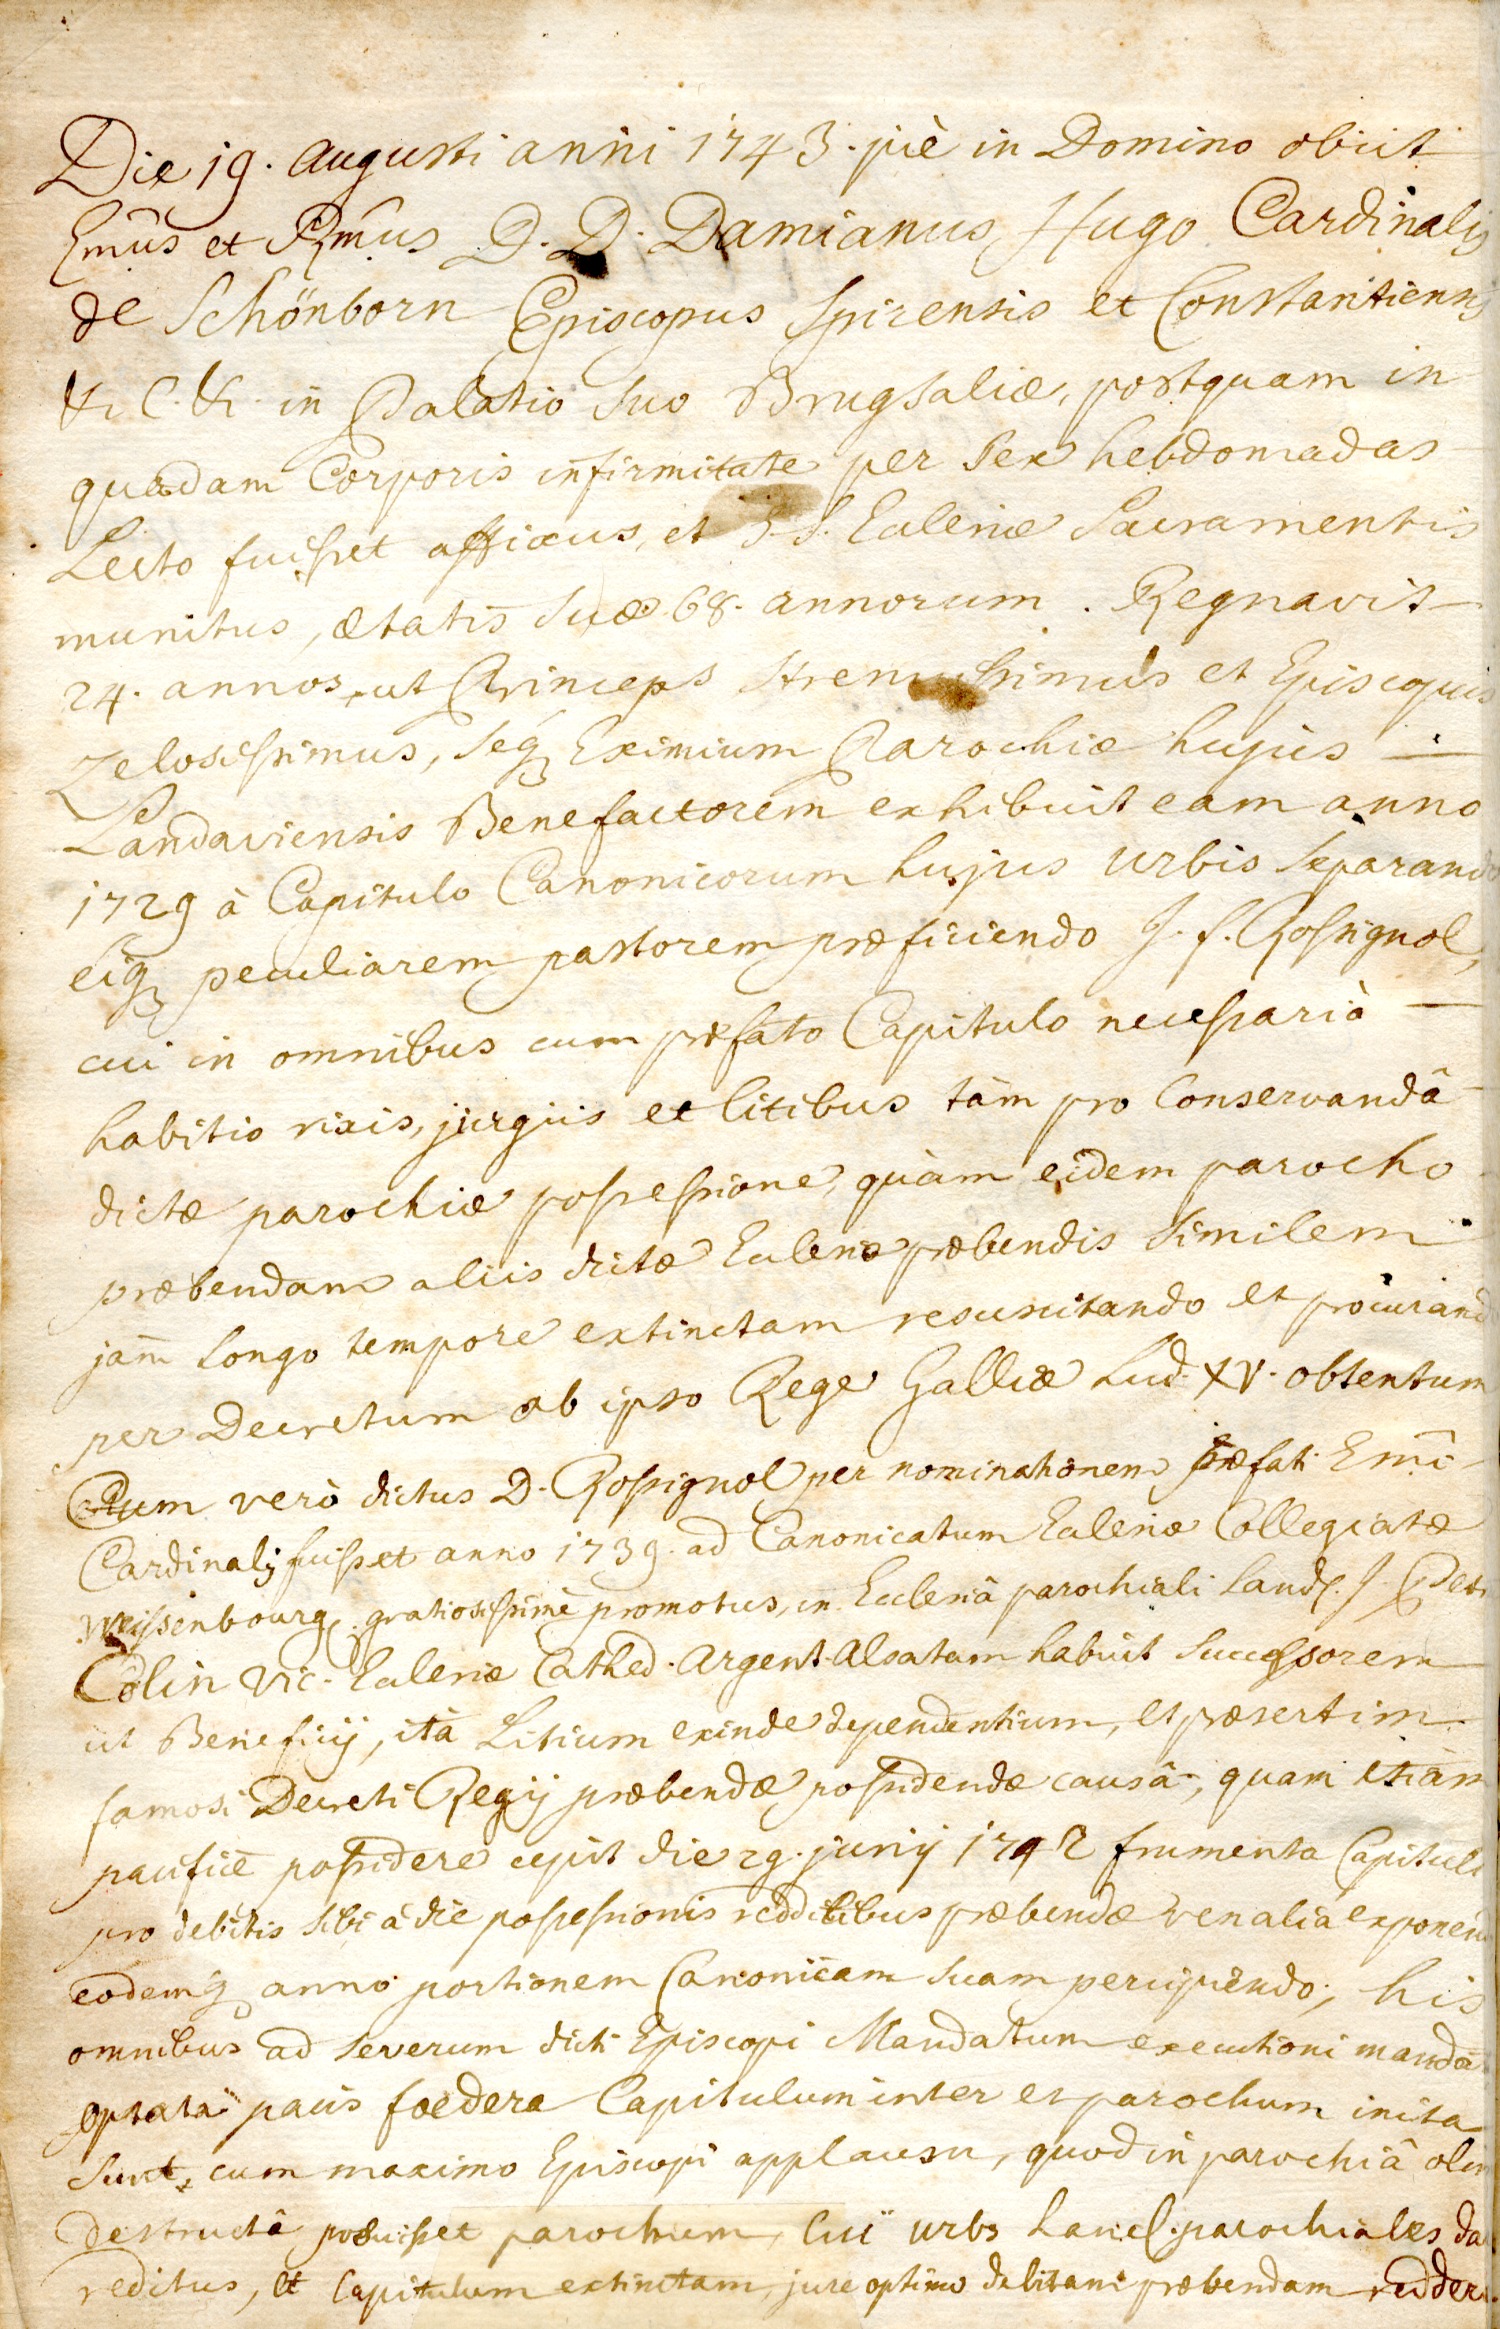 Die 19. Augusti anni 1743. piè in Domino obiit
Emus et Rmus D. D. Damianus Hugo Cardinalis
de Schönborn Episcopus Spirensis et Constantiensis
&c. &c. in Palatio suo Brugsaliæ, postquam in
quadam Corporis infirmitate per sex hebdomadas
Lecto fuisset affixus, et S. S. Ecclesiæ Sacramentis
munitus, ætatis suæ 68. annorum. Regnavit
24. annos, ut Princeps strenuissimus et Episcopus
zelosissimus, seq. Eximium Parochiæ hujus
Landaviensis Benefactorem exhibuit eam anno
1729 à Capitulo Canonicorum hujus urbis separando
eiq. peculiarem pastorem præficiendo J. f. Rossignol,
cui in omnibus cum præfato Capitulo necessariò
habitis rixis, jurgiis et litibus tàm pro conservandâ
dictæ parochiæ possessione, quàm eidem parocho
præbendam aliis dictæ Ecclesiæ præbendis similem
jam longo tempore extinctam resuscitando et procurando
per Decretum ab ipso Rege Galliæ Lud. XV. obtentum
Cum verò dictus D. Rossignol per nominationem præfati Emi
Cardinalis fuisset anno 1739. ad Canonicatum Ecclesiæ Collegiatæ
Weissenbourg. gratiosissimè promotus, in Ecclesiâ parochiali Land. J. Petr
Colin Vic. Ecclesiæ Cathed. Argent. Alsatam habuit successorem
ut Beneficij, ità Litium exinde dependentium, et præsertim
famosi Decreti Regij præbendæ possidendæ causâ, quam etiam
pacificè possidere cepit die 29. junij 1742 frumenta Capituli
pro debitis sibi à die possessionis redditibus præbendæ venalia exponendo
eodemq. anno portionem Canonicam suam percipiendo; his
omnibus ad severum dicti Episcopi Mandatum executioni mandatis
optata pacis foedera Capitulum inter et parochum inita
sunt, cum maximo Episcopi applausu, quod in parochiâ olim
destructâ posuisset parochum, cui urbs Land. parochiales dat
reditus, et Capitulum extinctam, jure optimo debitam præbendam reddere.